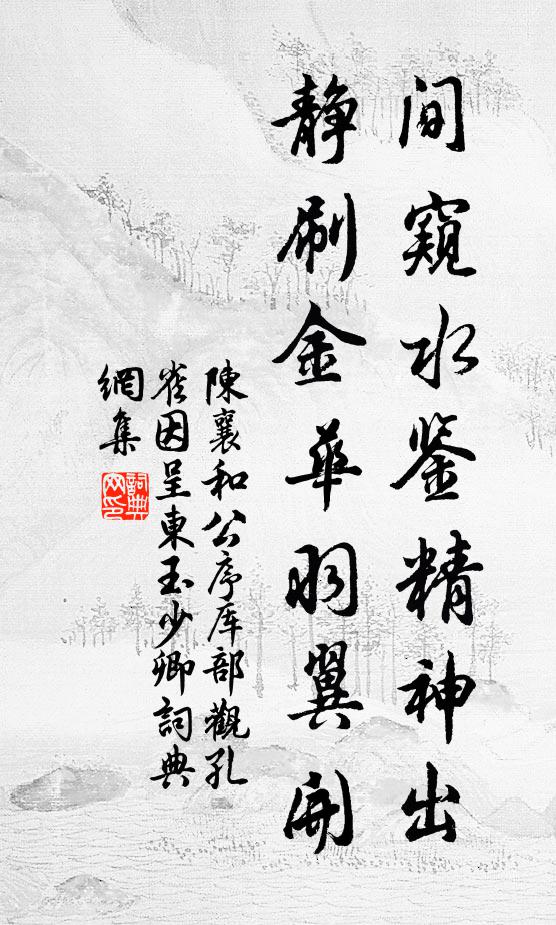 间窥水鉴精神出
静刷金华羽翼开
陳襄和公序库部觀孔
雀因呈東玉少卿詞典
網集
詞典網印